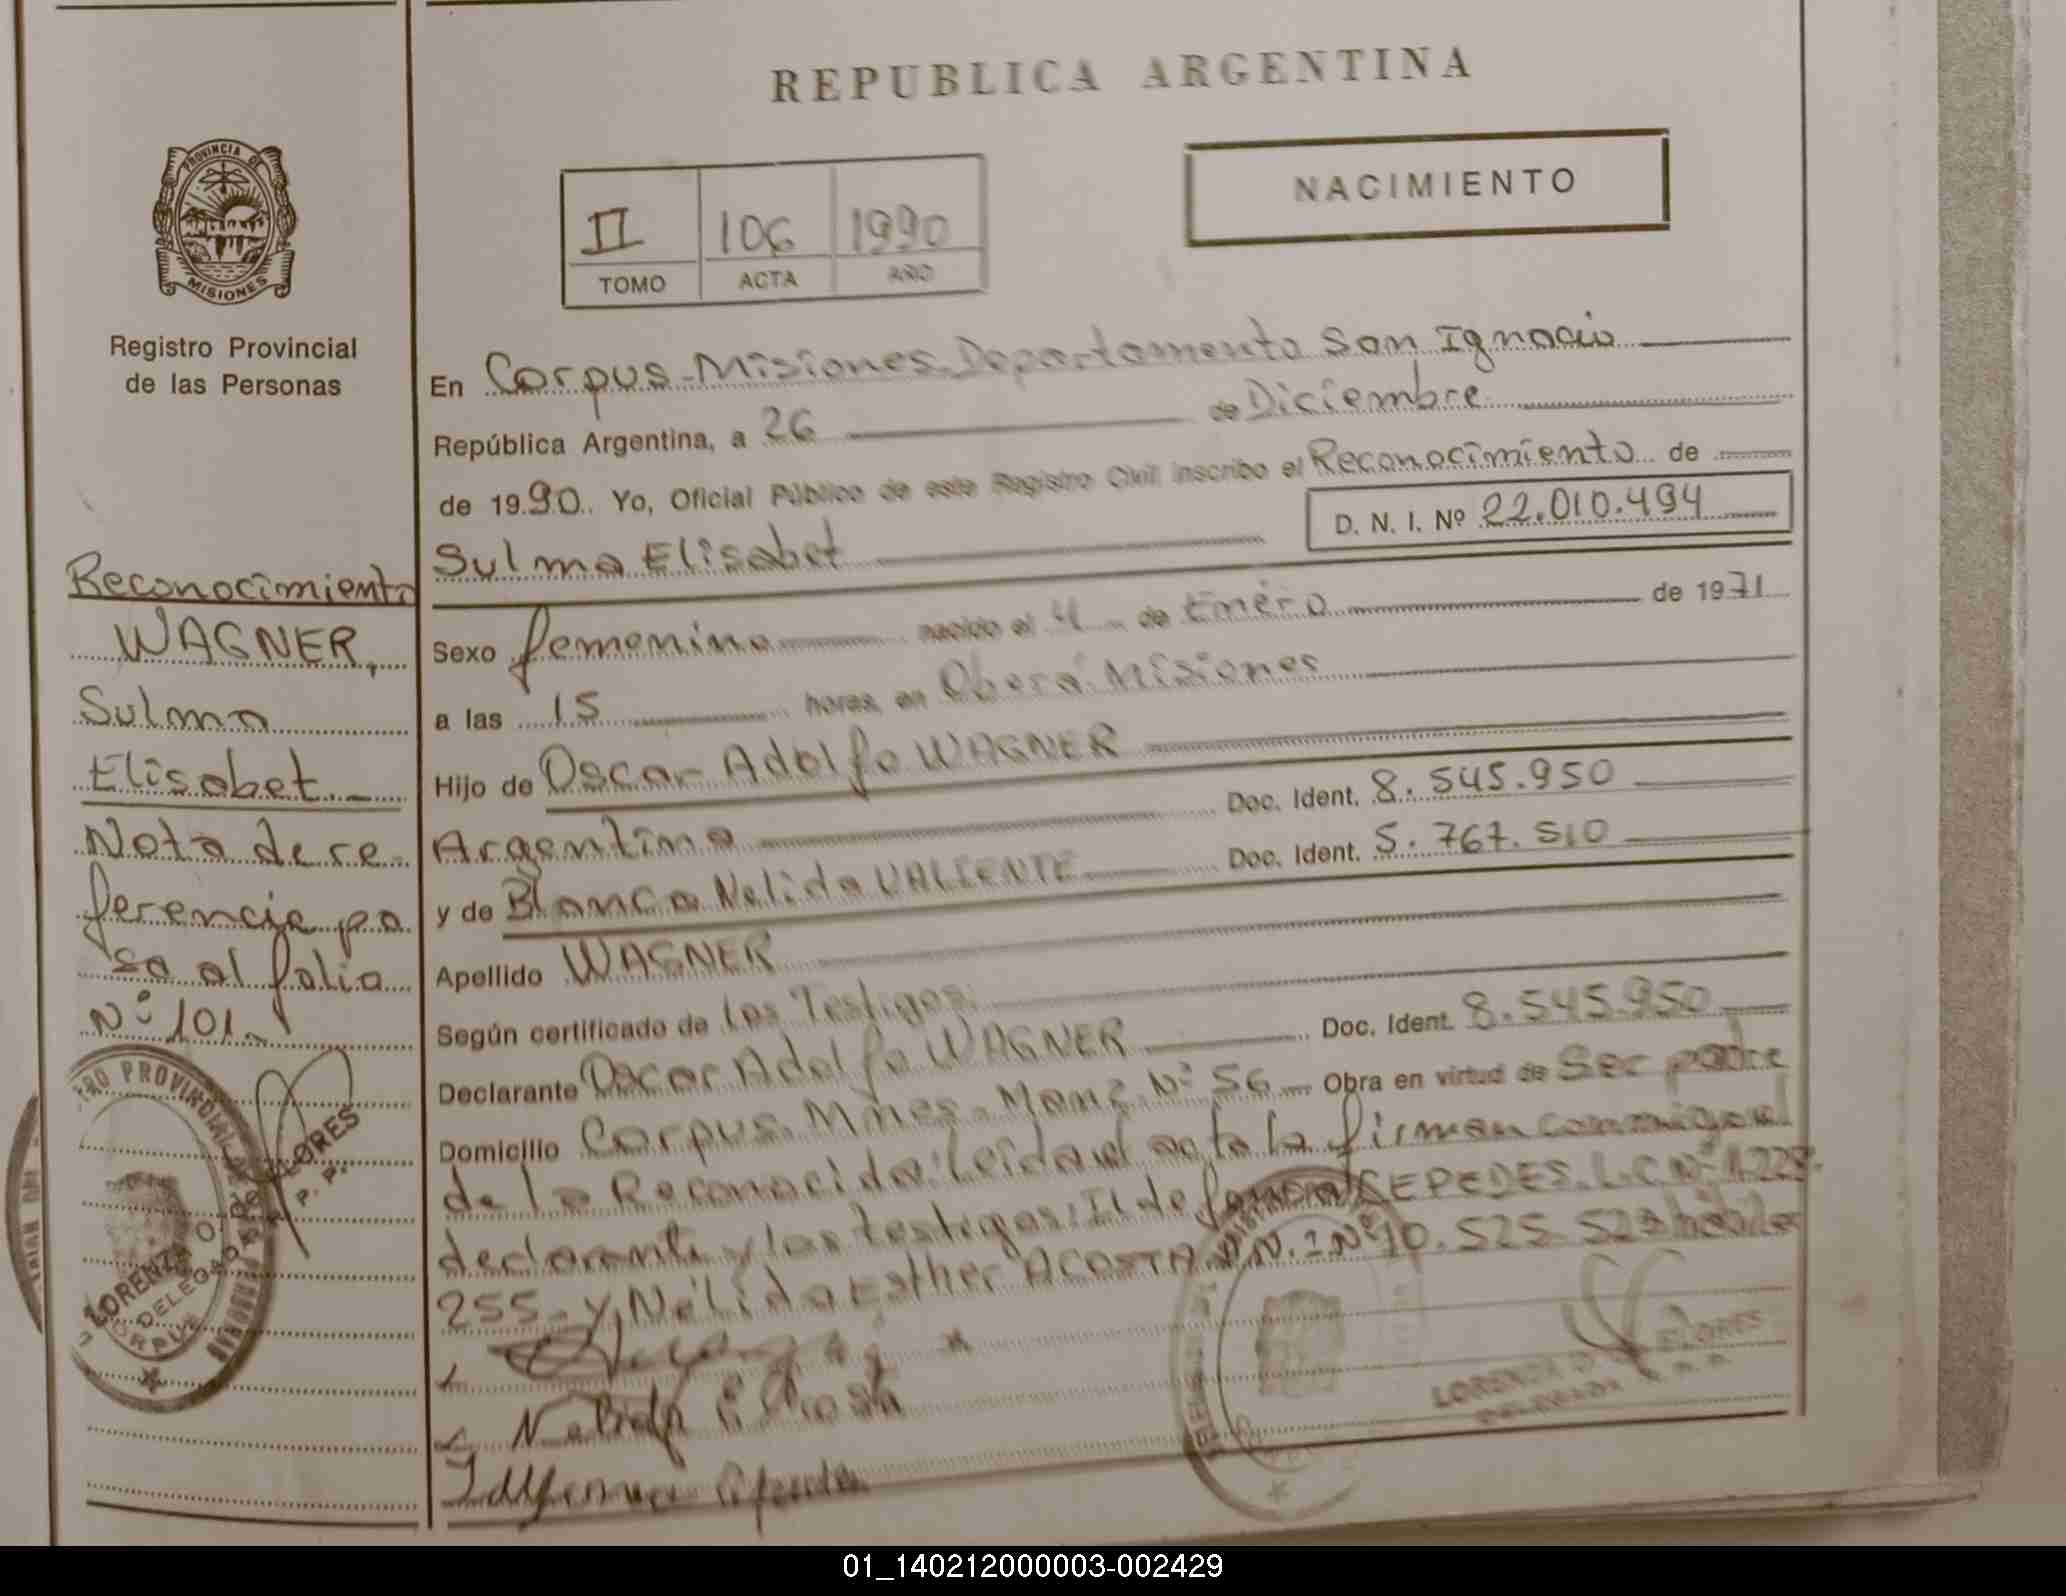 REPUBLICA ARGENTINA
PROVINCIA DE
MISIONES
Registro Provincial
de las Personas
II 106 1990
TOMO ACTA AÑO
NACIMIENTO
En Corpus - Misiones. Departamento San Ignacio
República Argentina, a 26 de Diciembre
de 1990. Yo, Oficial Público de este Registro Civil inscribo el Reconocimiento de
Sulma Elisabet D. N. I. Nº 22.010.494
Sexo femenino nacido el 4 de Enero de 1971
a las 15 horas, en Oberá Misiones
Hijo de Oscar Adolfo WAGNER
Argentino Doc. Ident. 8.545.950
y de Blanca Nelida VALIENTE Doc. Ident. 5.767.510
Apellido WAGNER
Según certificado de los Testigos
Declarante Oscar Adolfo WAGNER Doc. Ident. 8.545.950
Domicilio Corpus. Mnes. Manz. Nº 56 Obra en virtud de Ser padre
de la Reconocida. Leída el acta la firman conmigo el
declarante y los testigos: CEPEDES. L.C Nº
255- y Nélida Esther ACOSTA D.N.I Nº 10.525.
Reconocimiento
WAGNER,
Sulma
Elisabet.-
Nota de re-
ferencia pa
sa al folio
Nº 101.
PROVINCIAL
LORENZA O. DE FLORES
DELEGADA R. P. P.
CORPUS
LORENZA O. DE FLORES
DELEGADA R. P. P.
01_140212000003-002429